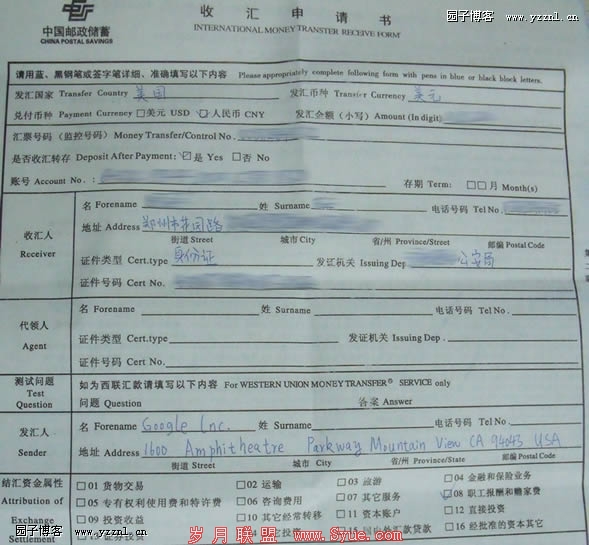 园子博客
www.yzznl.cn
中国邮政储蓄
CHINA POSTAL SAVINGS
收 汇 申 请 书
INTERNATIONAL MONEY TRANSFER RECEIVE FORM
请用蓝、黑钢笔或签字笔详细、准确填写以下内容 Please appropriately complete following form with pens in blue or black block letters.
发汇国家 Transfer Country 美国 发汇币种 Transfer Currency 美元
兑付币种 Payment Currency □美元 USD ☑人民币 CNY 发汇金额（小写）Amount (In digit)
汇票号码（监控号码）Money Transfer/Control No.
是否收汇转存 Deposit After Payment: ☑是 Yes □否 No
账号 Account No.: 存期 Term: □□月 Month(s)
收汇人 Receiver
名 Forename 姓 Surname 电话号码 Tel No.
地址 Address 郑州市花园路
街道 Street 城市 City 省/州 Province/Street 邮编 Postal Code
证件类型 Cert.type 身份证 发证机关 Issuing Dep 公安局
证件号码 Cert No.
代领人 Agent
名 Forename 姓 Surname 电话号码 Tel No.
证件类型 Cert.type 发证机关 Issuing Dep.
证件号码 Cert No.
测试问题 Test Question
如为西联汇款请填写以下内容 For WESTERN UNION MONEY TRANSFER® SERVICE only
问题 Question 答案 Answer
发汇人 Sender
名 Forename Google Inc. 姓 Surname 电话号码 Tel No.
地址 Address 1600 Amphitheatre Parkway Mountain View CA 94043 USA
街道 Street 城市 City 省/州 Province/State 邮编 Postal Code
结汇资金属性 Attribution of Exchange Settlement
□01 货物交易 □02 运输 □03 旅游 □04 金融和保险业务
□05 专有权利使用费和特许费 □06 咨询费用 □07 其它服务 ☑08 职工报酬和赡家费
□09 投资收益 □10 其它经常转移 □11 资本账户 □12 直接投资
□13 证券投资 □15 国内外汇贷款 □16 经批准的资本其它
园子博客
www.yzznl.cn
岁月联盟 www.Syue.com